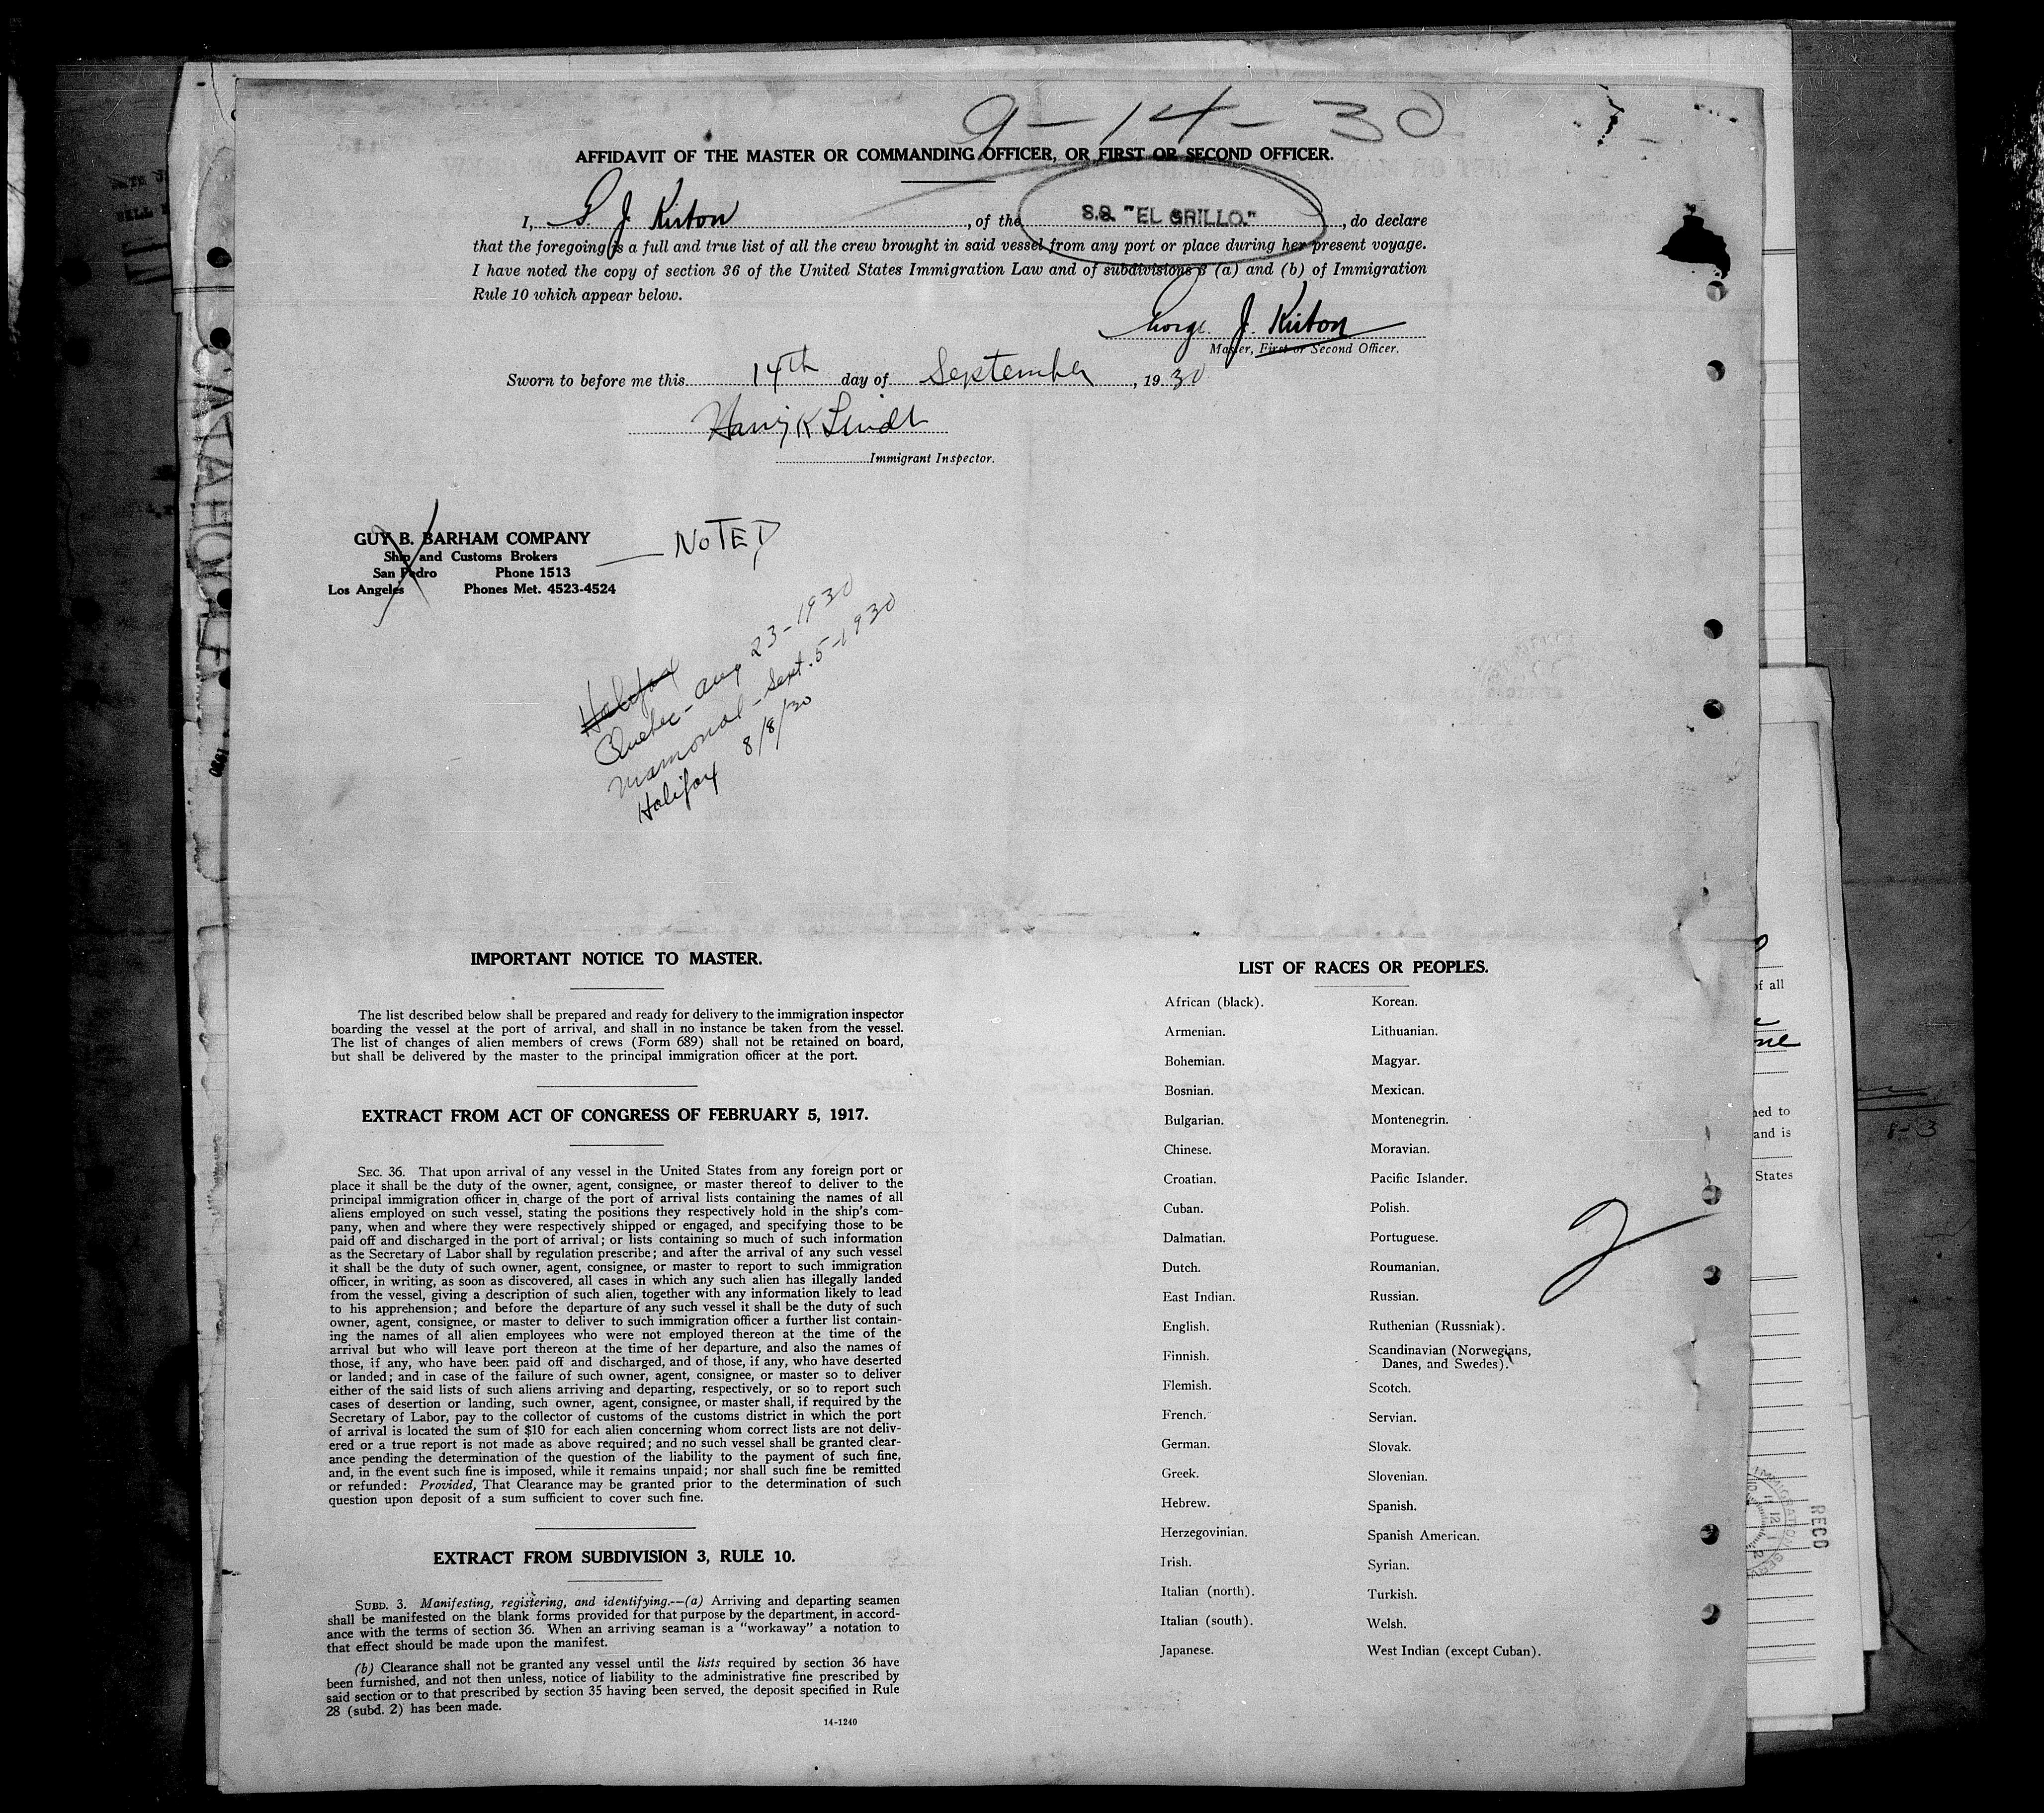 9-14-30
AFFIDAVIT OF THE MASTER OR COMMANDING OFFICER, OR FIRST OR SECOND OFFICER.
I, G J. Kirton, of the S.S. "EL GRILLO.", do declare
that the foregoing is a full and true list of all the crew brought in said vessel from any port or place during her present voyage.
I have noted the copy of section 36 of the United States Immigration Law and of subdivisions 3 (a) and (b) of Immigration
Rule 10 which appear below.
George J. Kirton
Master, First or Second Officer.
Sworn to before me this 14th day of September, 1930
Harry K
Immigrant Inspector.
GUY B. BARHAM COMPANY
Ship and Customs Brokers
San Pedro Phone 1513
Los Angeles Phones Met. 4523-4524
NOTED
Halifax
Quebec - Aug 23-1930
- Sept. 5-1930
Halifax 8/8/30
IMPORTANT NOTICE TO MASTER.
The list described below shall be prepared and ready for delivery to the immigration inspector
boarding the vessel at the port of arrival, and shall in no instance be taken from the vessel.
The list of changes of alien members of crews (Form 689) shall not be retained on board,
but shall be delivered by the master to the principal immigration officer at the port.
EXTRACT FROM ACT OF CONGRESS OF FEBRUARY 5, 1917.
SEC. 36. That upon arrival of any vessel in the United States from any foreign port or
place it shall be the duty of the owner, agent, consignee, or master thereof to deliver to the
principal immigration officer in charge of the port of arrival lists containing the names of all
aliens employed on such vessel, stating the positions they respectively hold in the ship's com-
pany, when and where they were respectively shipped or engaged, and specifying those to be
paid off and discharged in the port of arrival; or lists containing so much of such information
as the Secretary of Labor shall by regulation prescribe; and after the arrival of any such vessel
it shall be the duty of such owner, agent, consignee, or master to report to such immigration
officer, in writing, as soon as discovered, all cases in which any such alien has illegally landed
from the vessel, giving a description of such alien, together with any information likely to lead
to his apprehension; and before the departure of any such vessel it shall be the duty of such
owner, agent, consignee, or master to deliver to such immigration officer a further list contain-
ing the names of all alien employees who were not employed thereon at the time of the
arrival but who will leave port thereon at the time of her departure, and also the names of
those, if any, who have been paid off and discharged, and of those, if any, who have deserted
or landed; and in case of the failure of such owner, agent, consignee, or master so to deliver
either of the said lists of such aliens arriving and departing, respectively, or so to report such
cases of desertion or landing, such owner, agent, consignee, or master shall, if required by the
Secretary of Labor, pay to the collector of customs of the customs district in which the port
of arrival is located the sum of $10 for each alien concerning whom correct lists are not deliv-
ered or a true report is not made as above required; and no such vessel shall be granted clear-
ance pending the determination of the question of the liability to the payment of such fine,
and, in the event such fine is imposed, while it remains unpaid; nor shall such fine be remitted
or refunded: Provided, That Clearance may be granted prior to the determination of such
question upon deposit of a sum sufficient to cover such fine.
EXTRACT FROM SUBDIVISION 3, RULE 10.
SUBD. 3. Manifesting, registering, and identifying.—(a) Arriving and departing seamen
shall be manifested on the blank forms provided for that purpose by the department, in accord-
ance with the terms of section 36. When an arriving seaman is a "workaway" a notation to
that effect should be made upon the manifest.
(b) Clearance shall not be granted any vessel until the lists required by section 36 have
been furnished, and not then unless, notice of liability to the administrative fine prescribed by
said section or to that prescribed by section 35 having been served, the deposit specified in Rule
28 (subd. 2) has been made.
14-1240
LIST OF RACES OR PEOPLES.
African (black).
Armenian.
Bohemian.
Bosnian.
Bulgarian.
Chinese.
Croatian.
Cuban.
Dalmatian.
Dutch.
East Indian.
English.
Finnish.
Flemish.
French.
German.
Greek.
Hebrew.
Herzegovinian.
Irish.
Italian (north).
Italian (south).
Japanese.
Korean.
Lithuanian.
Magyar.
Mexican.
Montenegrin.
Moravian.
Pacific Islander.
Polish.
Portuguese.
Roumanian.
Russian.
Ruthenian (Russniak).
Scandinavian (Norwegians,
Danes, and Swedes).
Scotch.
Servian.
Slovak.
Slovenian.
Spanish.
Spanish American.
Syrian.
Turkish.
Welsh.
West Indian (except Cuban).
2
of all
and is
States
RECD